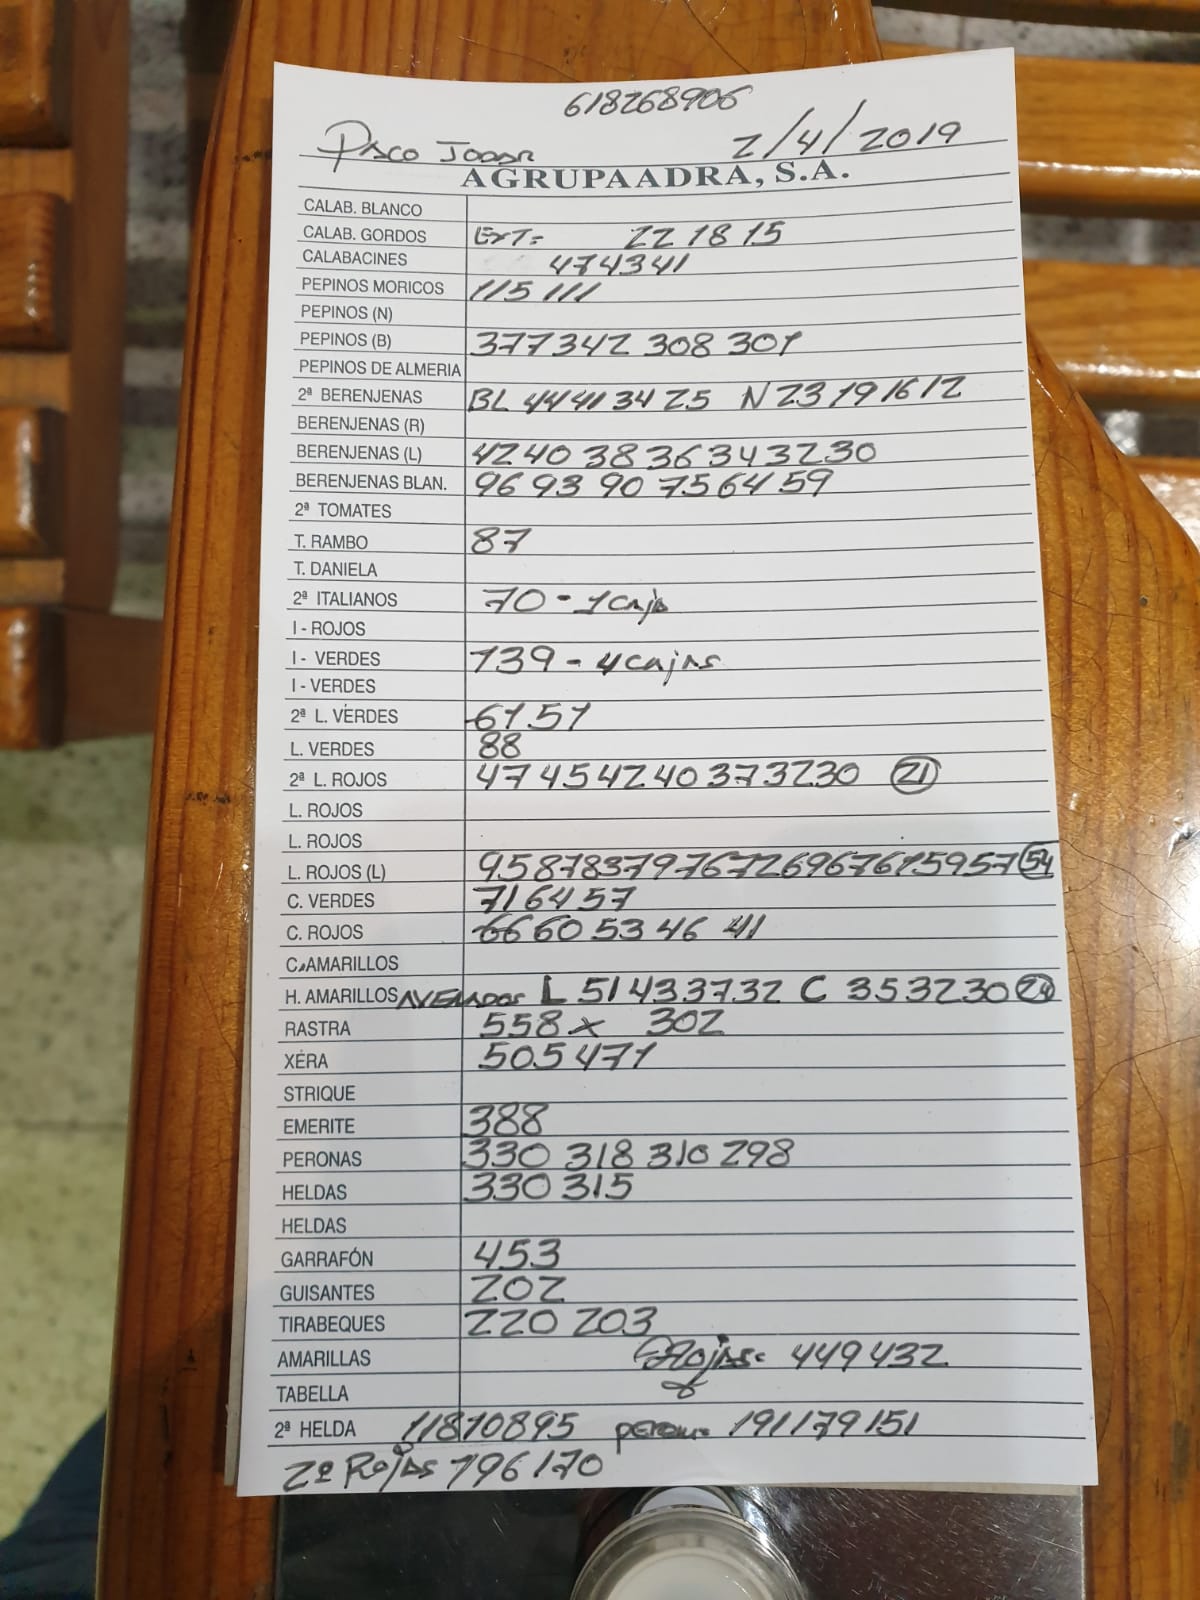 618268906
Paco Jodar 2/4/2019
AGRUPAADRA, S.A.
CALAB. BLANCO
CALAB. GORDOS EXT= 22 18 15
CALABACINES 47 43 41
PEPINOS MORICOS 115 111
PEPINOS (N)
PEPINOS (B) 377 342 308 301
PEPINOS DE ALMERIA
2ª BERENJENAS BL 44 41 34 25 N 23 19 16 12
BERENJENAS (R)
BERENJENAS (L) 42 40 38 36 34 32 30
BERENJENAS BLAN. 96 93 90 75 64 59
2ª TOMATES
T. RAMBO 87
T. DANIELA
2ª ITALIANOS 70 - 1 caja
I - ROJOS
I - VERDES 139 - 4 cajas
I - VERDES
2ª L. VERDES 61 51
L. VERDES 88
2ª L. ROJOS 47 45 42 40 37 32 30 21
L. ROJOS
L. ROJOS
L. ROJOS (L) 95 87 83 79 76 72 69 67 61 59 57 54
C. VERDES 71 64 57
C. ROJOS 66 60 53 46 41
C. AMARILLOS
H. AMARILLOS L 51 43 37 32 C 35 32 30 20
RASTRA 558 x 302
XERA 505 471
STRIQUE
EMERITE 388
PERONAS 330 318 310 298
HELDAS 330 315
HELDAS
GARRAFÓN 453
GUISANTES 202
TIRABEQUES 220 203
AMARILLAS Rojas= 449 432
TABELLA
2ª HELDA 118 108 95 perona= 191 179 151
2ª Rojas 196 170